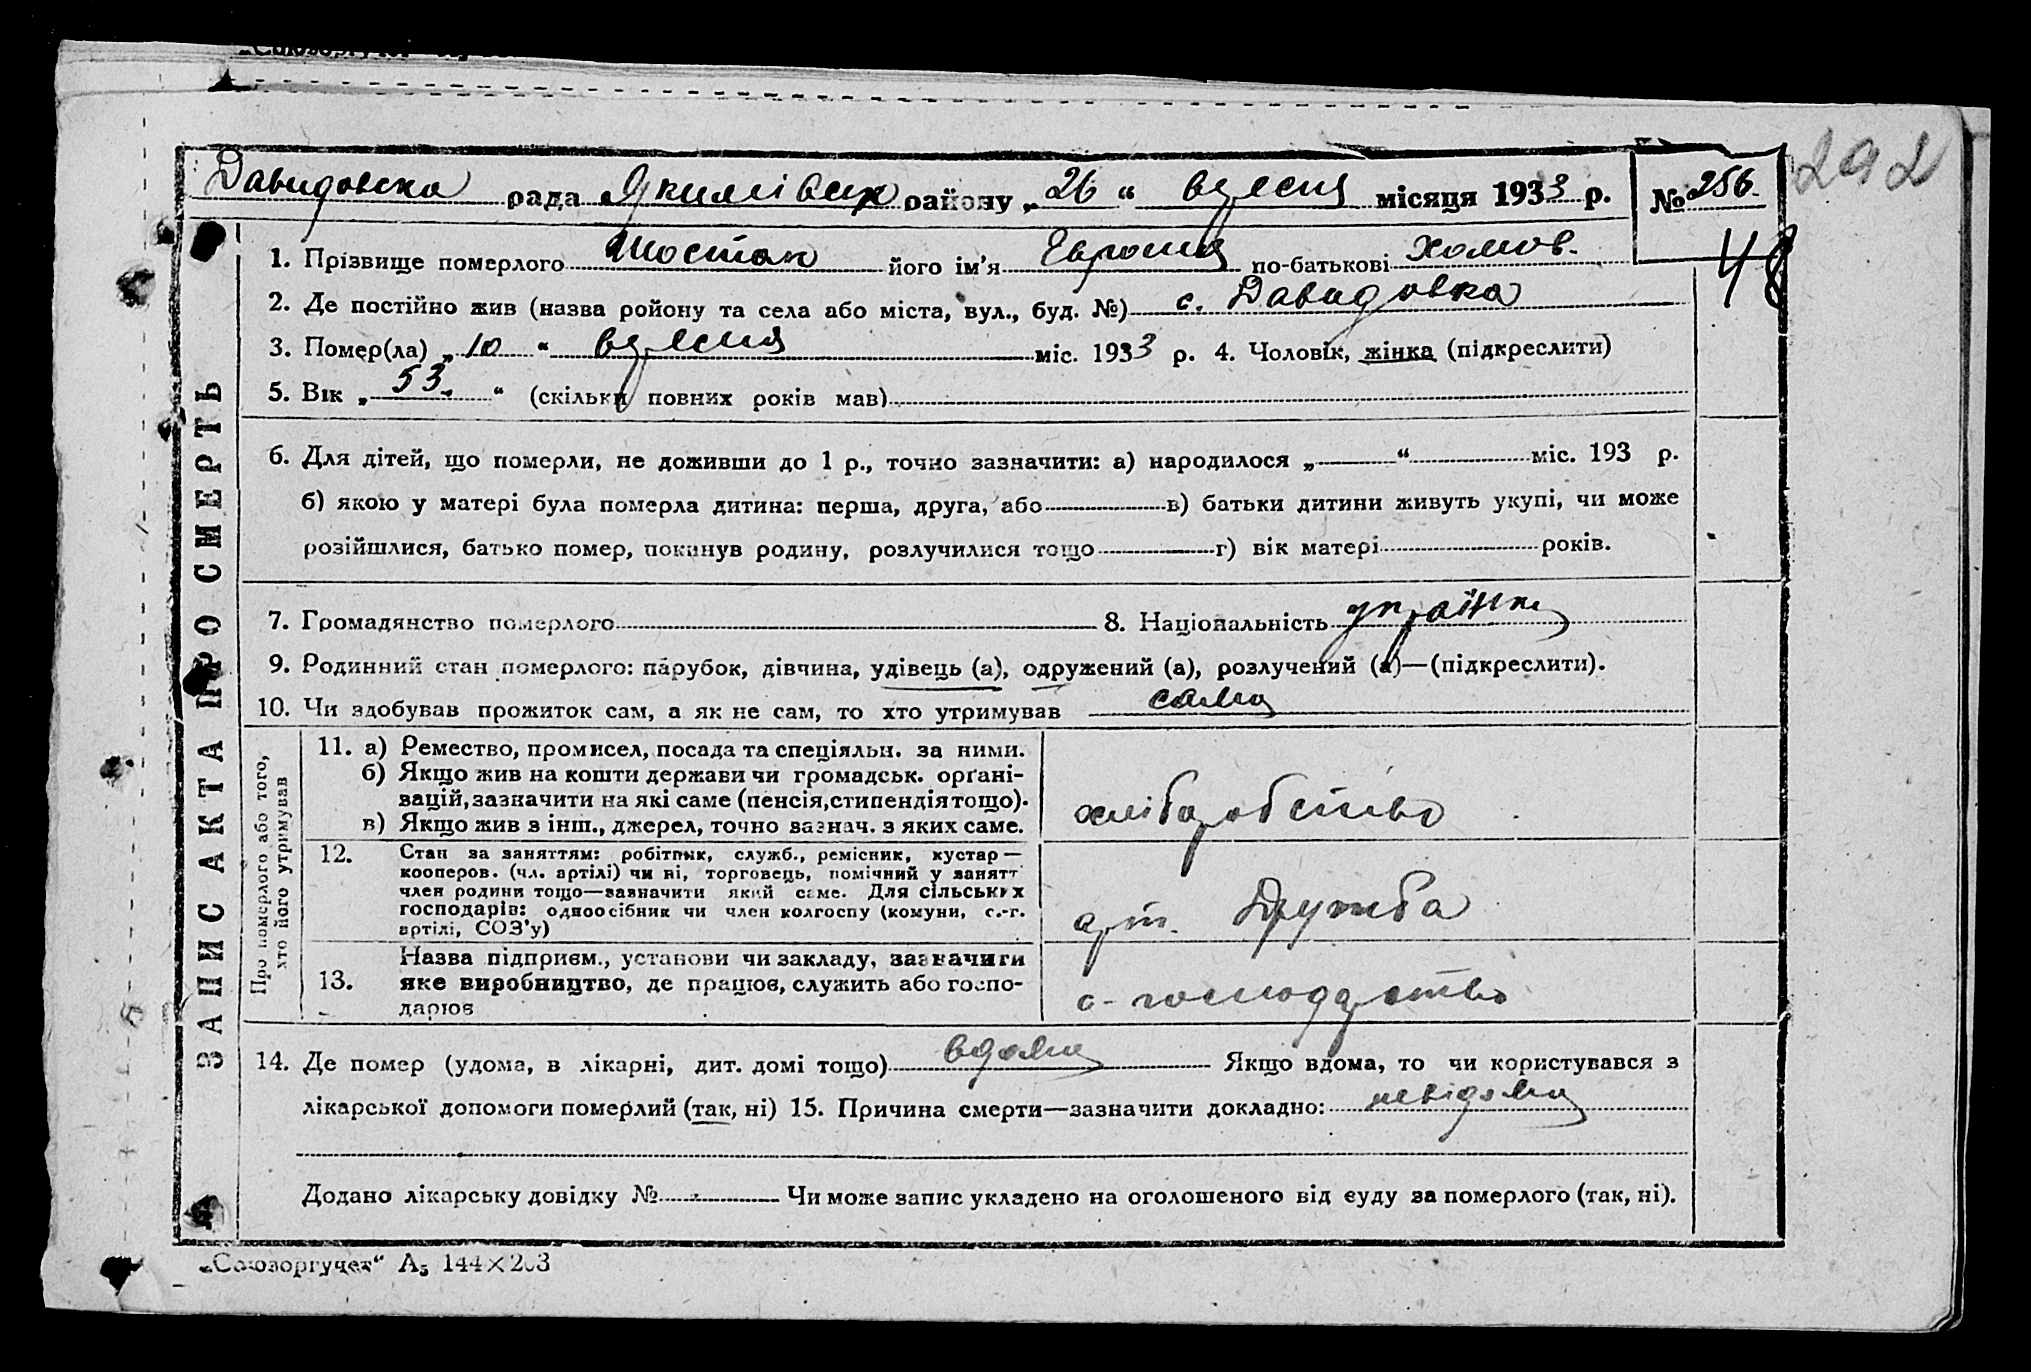 292
Давидовска рада Якимівськ району „26“ вересня місяця 1933 р. № 256.
48
1. Прізвище померлого Шостак його ім’я по-батькові Хомов.
2. Де постійно жив (назва ройону та села або міста, вул., буд. №) с. Давидовка
3. Помер(ла) „10“ вересня міс. 1933 р. 4. Чоловік, жінка (підкреслити)
5. Вік „53.“ (скільки повних років мав)
6. Для дітей, що померли, не доживши до 1 р., точно зазначити: а) народилося „ “ міс. 193 р.
б) якою у матері була померла дитина: перша, друга, або в) батьки дитини живуть укупі, чи може
розійшлися, батько помер, покинув родину, розлучилися тощо г) вік матері років.
7. Громадянство померлого 8. Національність україн
9. Родинний стан померлого: парубок, дівчина, удівець (а), одружений (а), розлучений (а)—(підкреслити).
10. Чи здобував прожиток сам, а як не сам, то хто утримував сама
ЗАПИС АКТА ПРО СМЕРТЬ
Про померлого або того,
хто його утримував
11. а) Ремество, промисел, посада та спеціяльн. за ними.
б) Якщо жив на кошти держави чи громадськ. орґані-
зацій, зазначити на які саме (пенсія, стипендія тощо).
в) Якщо жив з інш., джерел, точно зазнач. з яких саме.
хліборобство
12. Стан за заняттям: робітник, служб., ремісник, кустар —
кооперов. (чл. артілі) чи ні, торговець, помічний у занятт
член родини тощо—зазначити який саме. Для сільських
господарів: одноосібник чи член колгоспу (комуни, с.-г.
артілі, СОЗ’у)
арт. Дружба
13. Назва підприєм., установи чи закладу, зазначити
яке виробництво, де працює, служить або госпо-
дарює
с-господарство
14. Де помер (удома, в лікарні, дит. домі тощо) вдома Якщо вдома, то чи користувався з
лікарської допомоги померлий (так, ні) 15. Причина смерти—зазначити докладно: невідома
Додано лікарську довідку № Чи може запис укладено на оголошеного від суду за померлого (так, ні).
„Союзоргучет“ А5 144×203